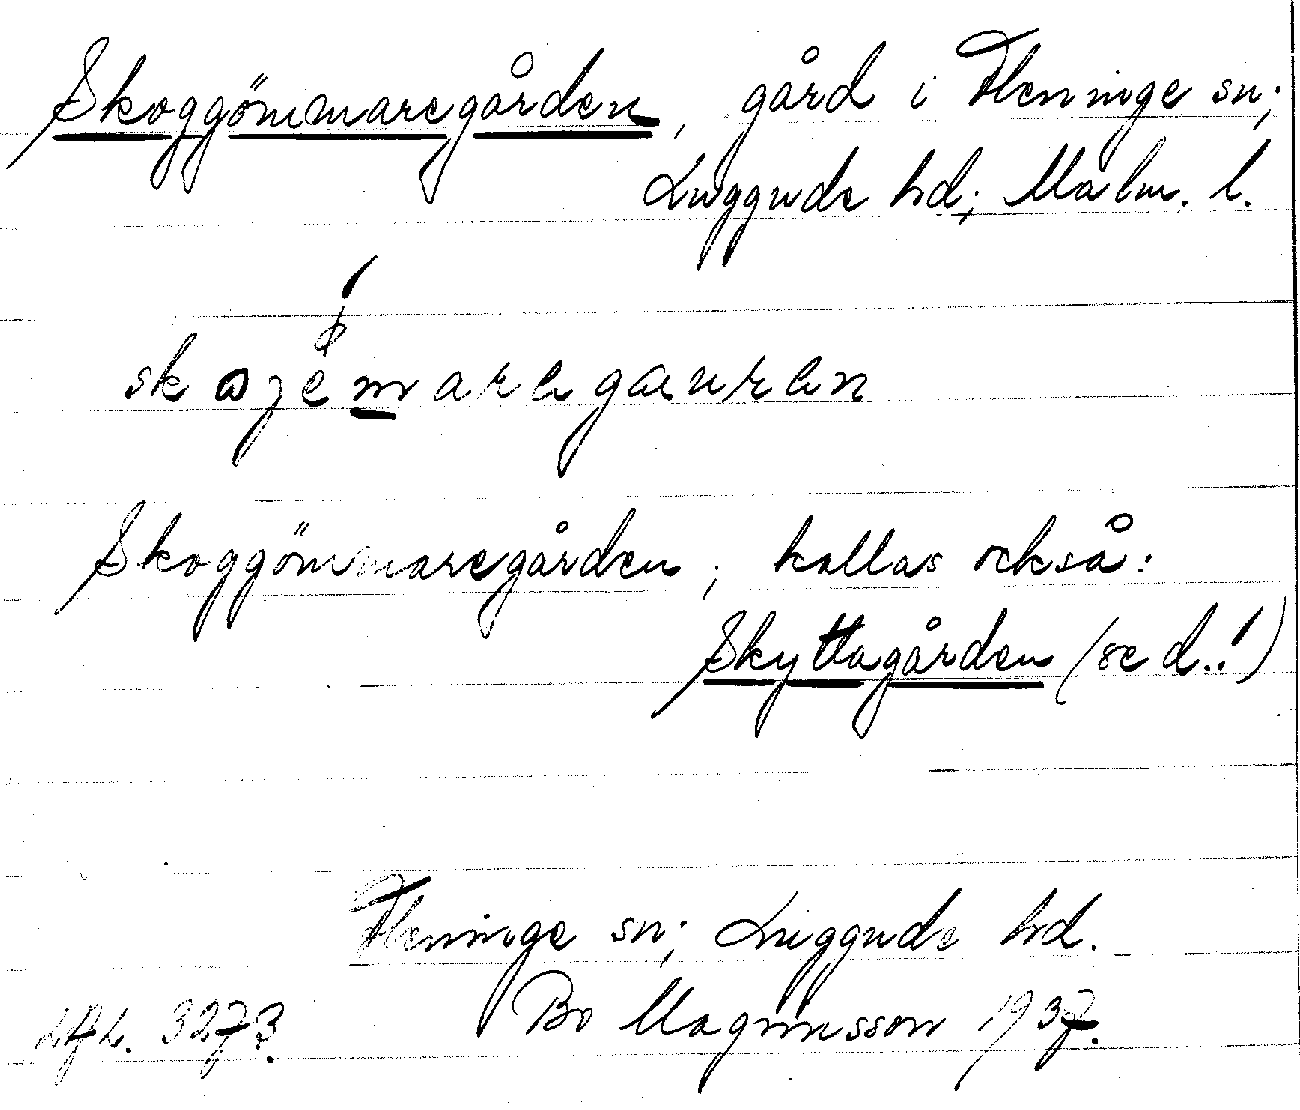 Skoggömmaregården, gård i Fleninge sn;
Luggude hd; Malm. l.
Skoggömmaregården; kallas också:
Skyttagården (se d..!)
Fleninge sn; Luggude hd.
3273. Bo Magnusson 1937.